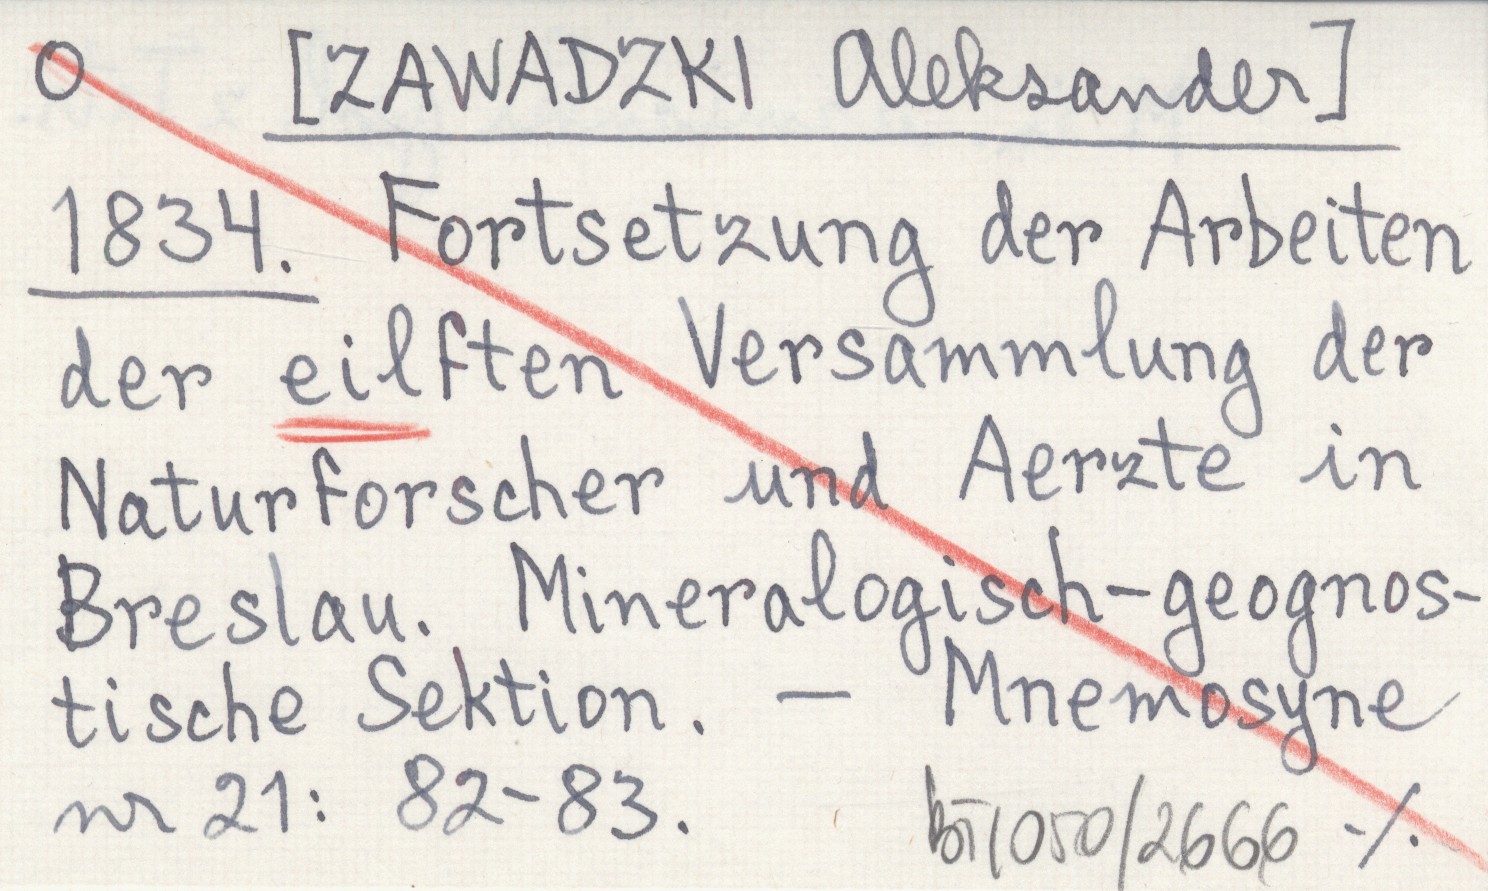 O [ZAWADZKI Aleksander]
1834. Fortsetzung der Arbeiten
der eilften Versammlung der
Naturforscher und Aerzte in
Breslau. Mineralogisch-geognos-
tische Sektion. — Mnemosyne
nr 21: 82-83.
1050/2666 -/.